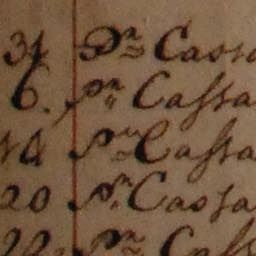 31 Pr Cassa
6. pr Cassa
14 pr Cassa
20 pr Cassa
22 pr Cass